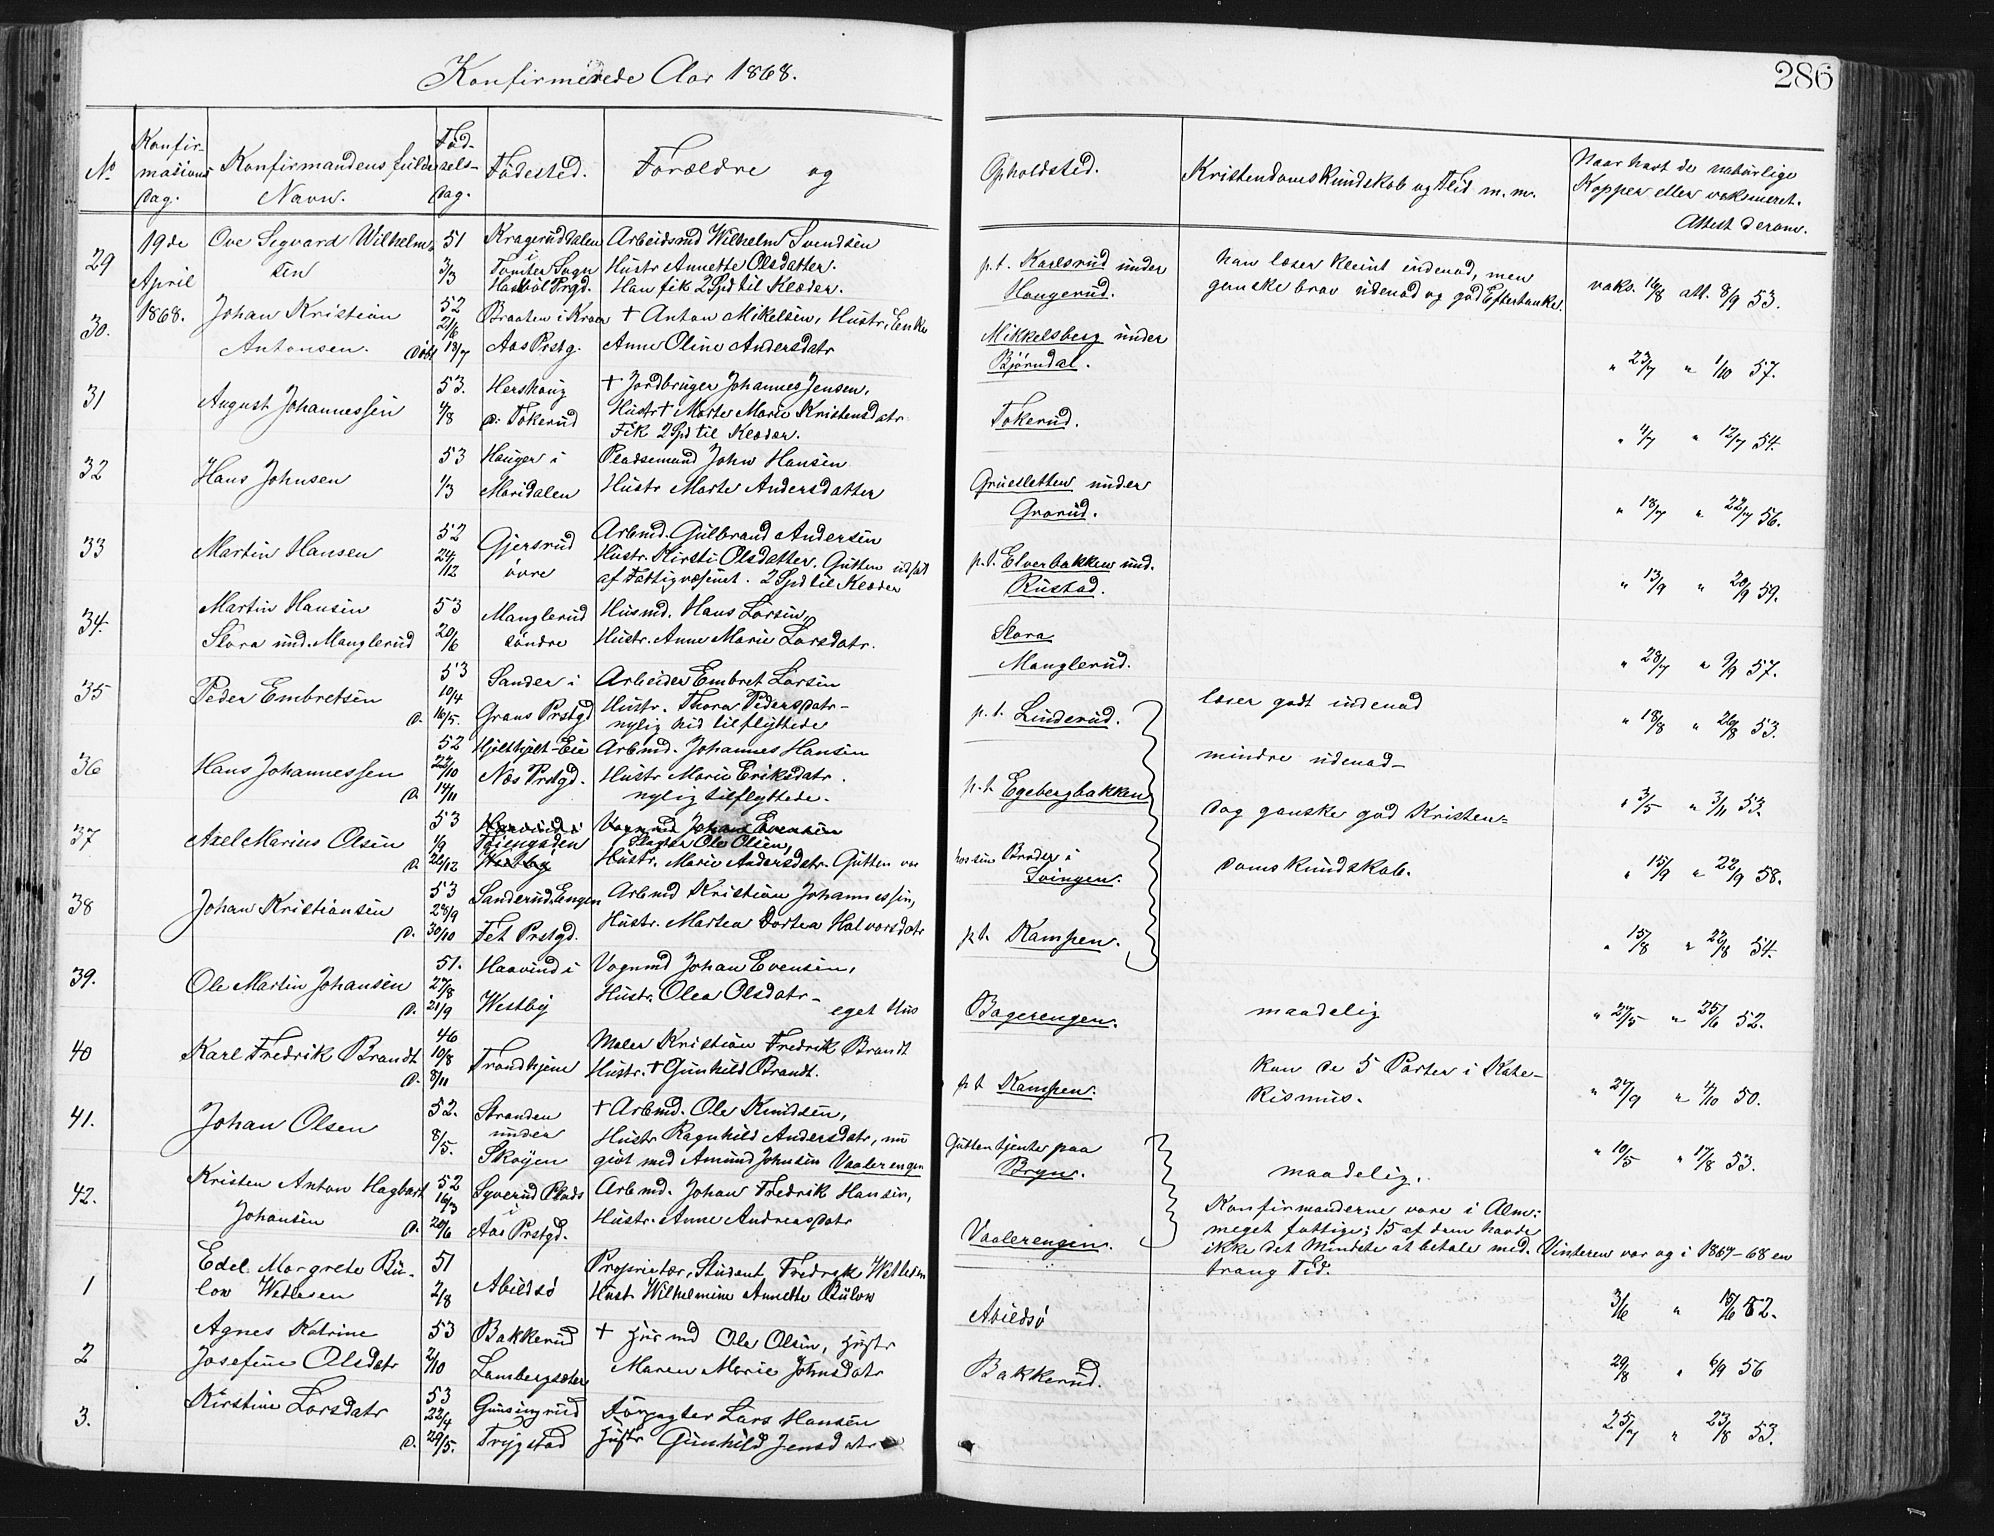 Konfirmerede Aar 1868.
286
No
Konfir-
masions
dag.
Konfirmandens fulde
Navn.
Fød-
sels-
dag.
Fødested.
Forældre og
Opholdsted.
Kristendomskundskab og Flid m. m.
Naar havt de naturlige
Kopper eller vaksineret.
Attest derom.
29
19de
April
1868.
Ove Segvard Wilhelm
sen
51
3/3
Kragerud dalen
i
Tomter Sogn
Haabøl Prgd.
Arbeidsmd Wilhelm Svendsen
Hustr Annette Olsdatter.
Han fik 2 Spd til Klæder.
p.t. Karlsrud under
Haugerud.
han læser kleint indenad, men
ganske brav udenad og god Eftertanke.
vaks. 16/8 att. 8/9 53.
30.
Johan Kristian
Antonsen. Døbt
52
21/6
18/7
Braaten i Kroer
Aas Prstg.
+ Anton Mikelsen, Hustr. Enke
Anne Oline Andersdatr
Mikkelsberg under
Bjørndal.
" 23/7 " 1/10 57.
31
August Johannessen
53.
4/8
Herskoug
o: Tokerud
+ Jordbruger Johannes Jensen,
Hustr + Marte Marie Kristensdatr
Fik 2 Spd til Klæder.
Tokerud.
" 4/7 " 12/7 54.
32
Hans Johnsen
53
1/3
Hauger i
Maridalen
Pladsemand John Hansen
Hustr Marte Andersdatter
Gruesletten under
Grorud.
" 18/7 " 22/7 56.
33
Martin Hansen
52
24/12
Gjersrud
øvre
Arbmd. Gulbrand Andersen
Hustr. Kirsti Olsdatter. Gutten udsat
af Fattigvæsenet. 2 Spd til Klæder
p.t. Elverbakken und.
Rustad.
" 13/9 " 20/9 59.
34.
Martin Hansen
Slora und. Manglerud
53
20/6
Manglerud
søndre
Husmd. Hans Larsen,
Hustr. Anne Marie Larsdatr.
Slora
Manglerud.
" 28/7 " 9/9 57.
35
Peder Embretsen
53
10/4
d. 16/5.
Sander i
Grans Prstgd
Arbeider Embret Larsen
Hustr. Thora Pedersdatr-
nylig hid tilflyttede
p.t. Linderud.
læser godt indenad
" 18/8 " 26/8 53.
36
Hans Johannessen
52
22/10
d. 14/11
Hjelthjelt-Eie
Næs Prstgd.
Arbmd. Johannes Hansen
Hustr Marie Eriksdatr.
nylig tilflyttede.
p.t. Egebergbakken
mindre udenad-
" 3/5 " 3/11 53.
37
Axel Marius Olsen
53
1/9
d. 26/12
Haavind i
Fjerngaden
Westby
Vognmd Johan Evensen
Slagter Ole Olsen,
Hustr. Marie Andersdatr. Gutten var
hos sin Broder i
Svingen.
dog ganske god Kristen=
domskundskab.
" 15/9 " 22/9 58.
38
Johan Kristiansen
53
28/9
d. 30/10
Sanderud Engen
Fet Prstgd.
Arbmd Kristian Johannessen,
Hustr. Martea Dortea Halvorsdatr
p.t. Kampen.
" 15/8 " 22/8 54.
39.
Ole Martin Johansen
51.
27/8
d. 21/9
Haavind i
Westby
Vognmd Johan Evensen,
Hustr. Olea Olsdatr-
eget Hus
Bagerengen.
maadelig
" 27/5 " 25/6 52.
40
Karl Fredrik Brandt
46
10/8
d. 8/11
Trondhjem
Maler Kristian Fredrik Brandt
Hustr. + Gunhild Brandt.
p.t Kampen.
kun de 5 Parter i Kate-
kismus.
" 27/9 " 4/10 50.
41.
Johan Olsen
52.
8/5.
Stranden
under
Skøyen
+ Arbmd. Ole Knudsen,
Hustr Ragnhild Andersdatr, nu
givt med Amund Johnsen Vaalerengen
Gutten tjenter paa
Bryn.
maadelig.
" 10/5 " 17/8 53.
42.
Kristen Anton Hagbart
Johansen
52
16/3
d. 20/6
Syverud Plads
i
Aas Prstgd.
Arbmd. Johan Fredrik Hansen,
Hustr. Anne Andreasdatr
Vaalerengen.
Konfirmanderne vare i Alm:
meget fattige; 15 af dem havde
ikke det Mindste at betale med. Vinteren var og i 1867-68 en
trang Tid.
1
Edel Margrete Bü-
low Wetlesen
51
2/8
Abildsø
Proprietær, Student Fredrik Wetlesen
Hust Wilhelmine Annette Bülow
Abildsø
3/6 " 15/6 52.
2
Agnes Katrine
Josefine Olsdatr
53
2/10
Bakkerud
Lambergsæter
+ Husmd Ole Olsen, Hustr
Maren Marie Johnsdatr
Bakkerud.
29/8 " 6/9 56
3.
Kirstine Larsdatr
53
22/4
d. 29/5.
Gunsingrud
Trygstad
Forpagter Lars Hansen
Hustr Gunhild Jensdatr
25/7 " 23/8 53.